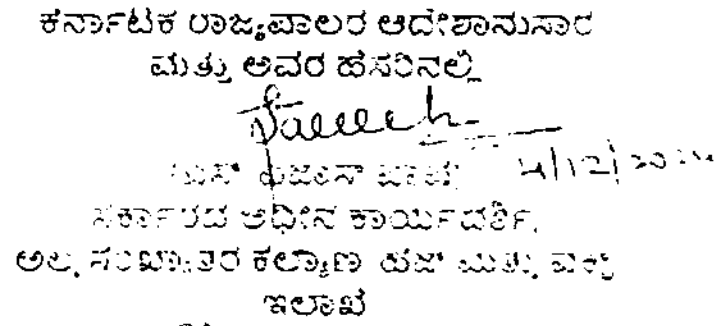 ಕರ್ನಾಟಕ ರಾಜ್ಯಪಾಲರ ಆದೇಶಾನುಸಾರ
ಮತ್ತು ಅವರ ಹೆಸರಿನಲ್ಲಿ
4/12/20
ಸರ್ಕಾರದ ಅಧೀನ ಕಾರ್ಯದರ್ಶಿ,
ಅಲ್ಪಸಂಖ್ಯಾತರ ಕಲ್ಯಾಣ ಹಜ್ ಮತ್ತು ವಕ್ಫ್
ಇಲಾಖೆ